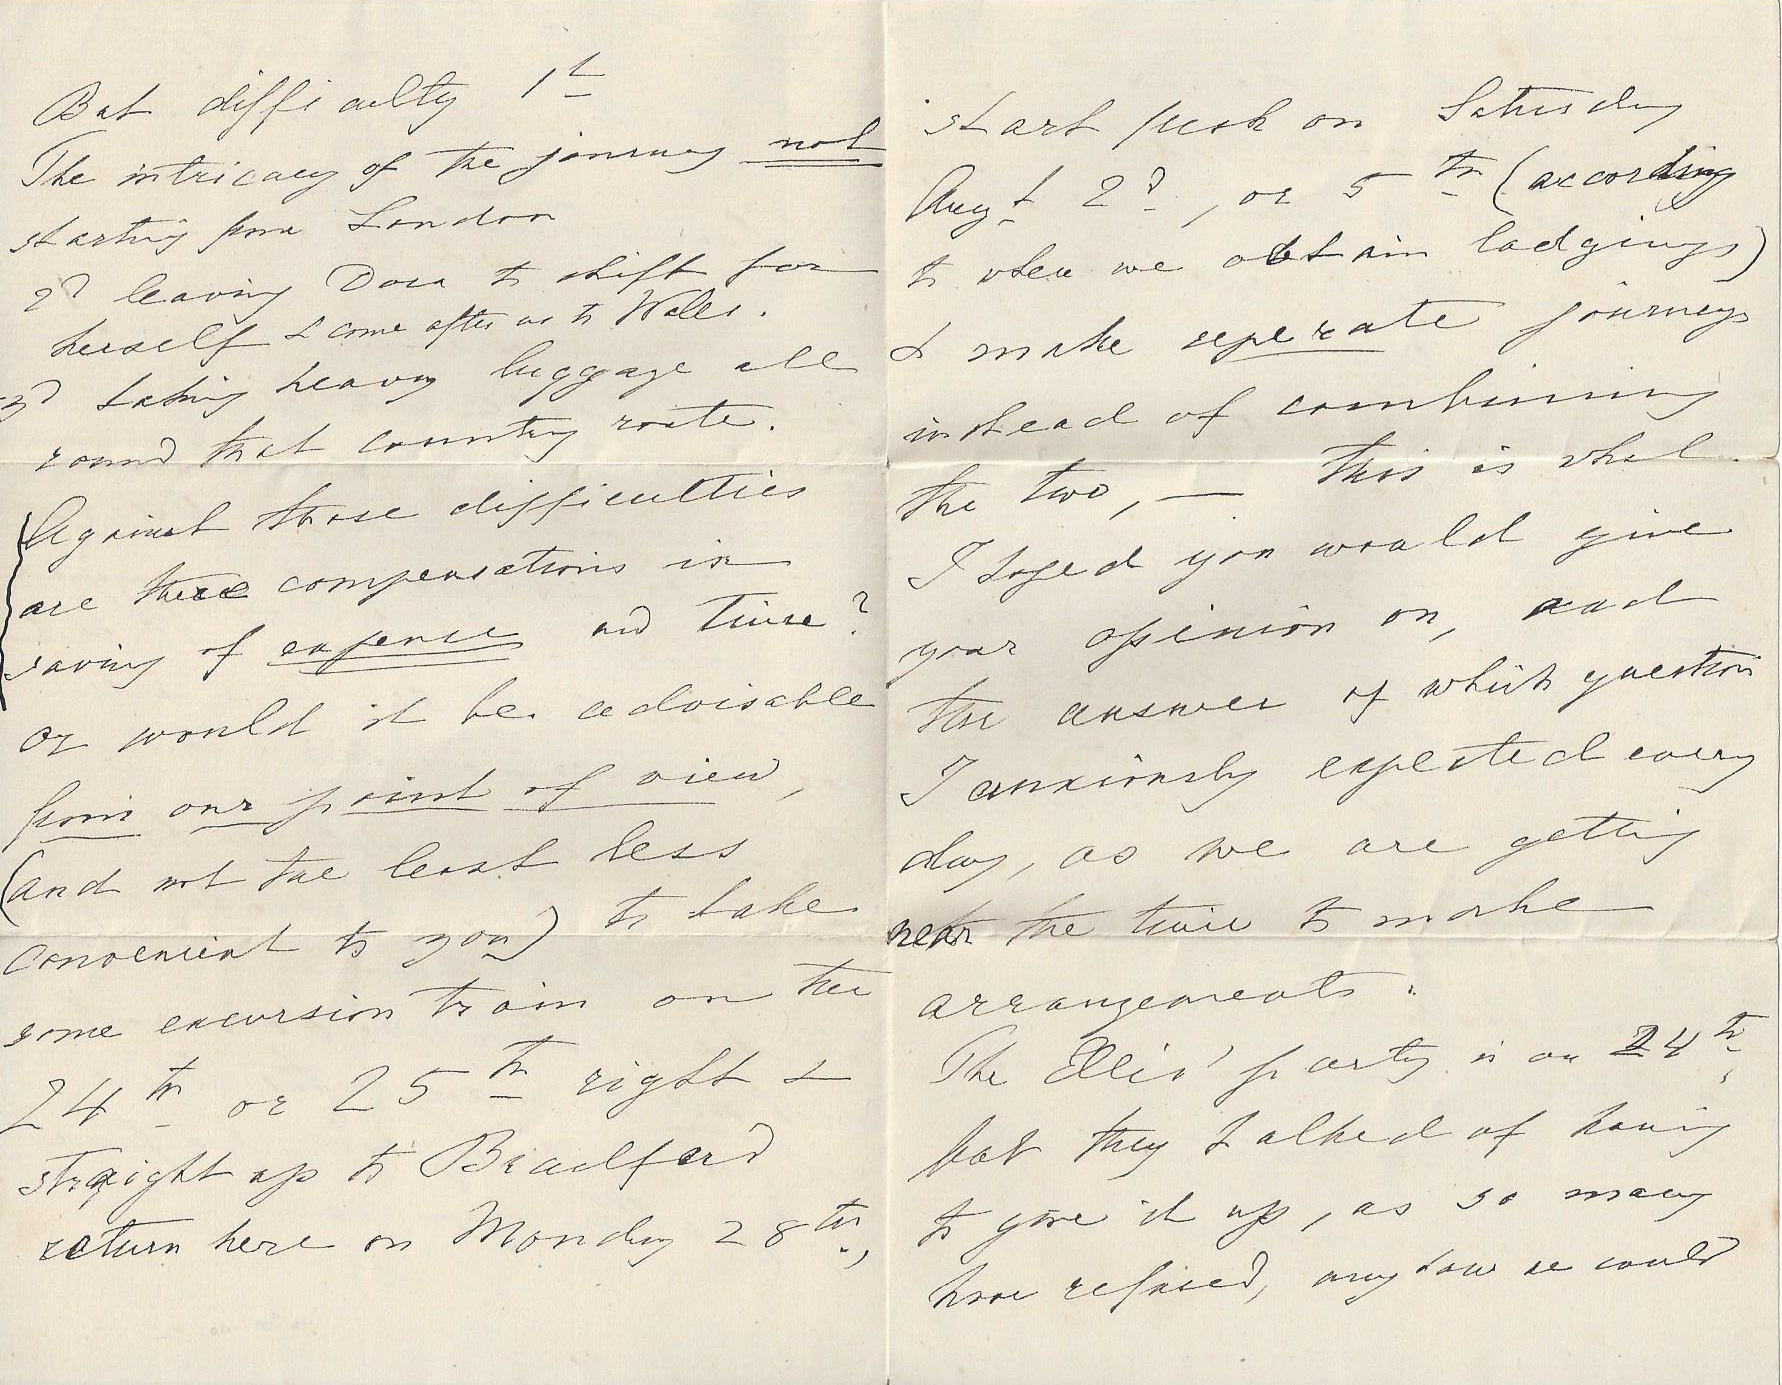 But difficulty 1st
The intricacy of the journey not
starting from London
2d leaving Dora to shift for
herself & come after us to Wells.
3d taking heavy luggage all
round that country route.
Against those difficulties
are there compensations in
saving of expense and time?
or would it be advisable
from our point of view,
(and not the least less
convenient to you) to take
some excursion train on the
24th or 25th right &
straight up to Bradford
return here on Monday 28th,
start fresh on Saturday
Augt 2d, or 5th (according
to when we obtain lodgings)
& make seperate journeys
instead of combining
the two, — this is what
I hoped you would give
your opinion on, and
the answer of which question
I anxiously expected every
day, as we are getting
near the time to make
arrangements.
The Ellis' party is on 24th,
but they talked of having
to give it up, as so many
have refused, any how we could